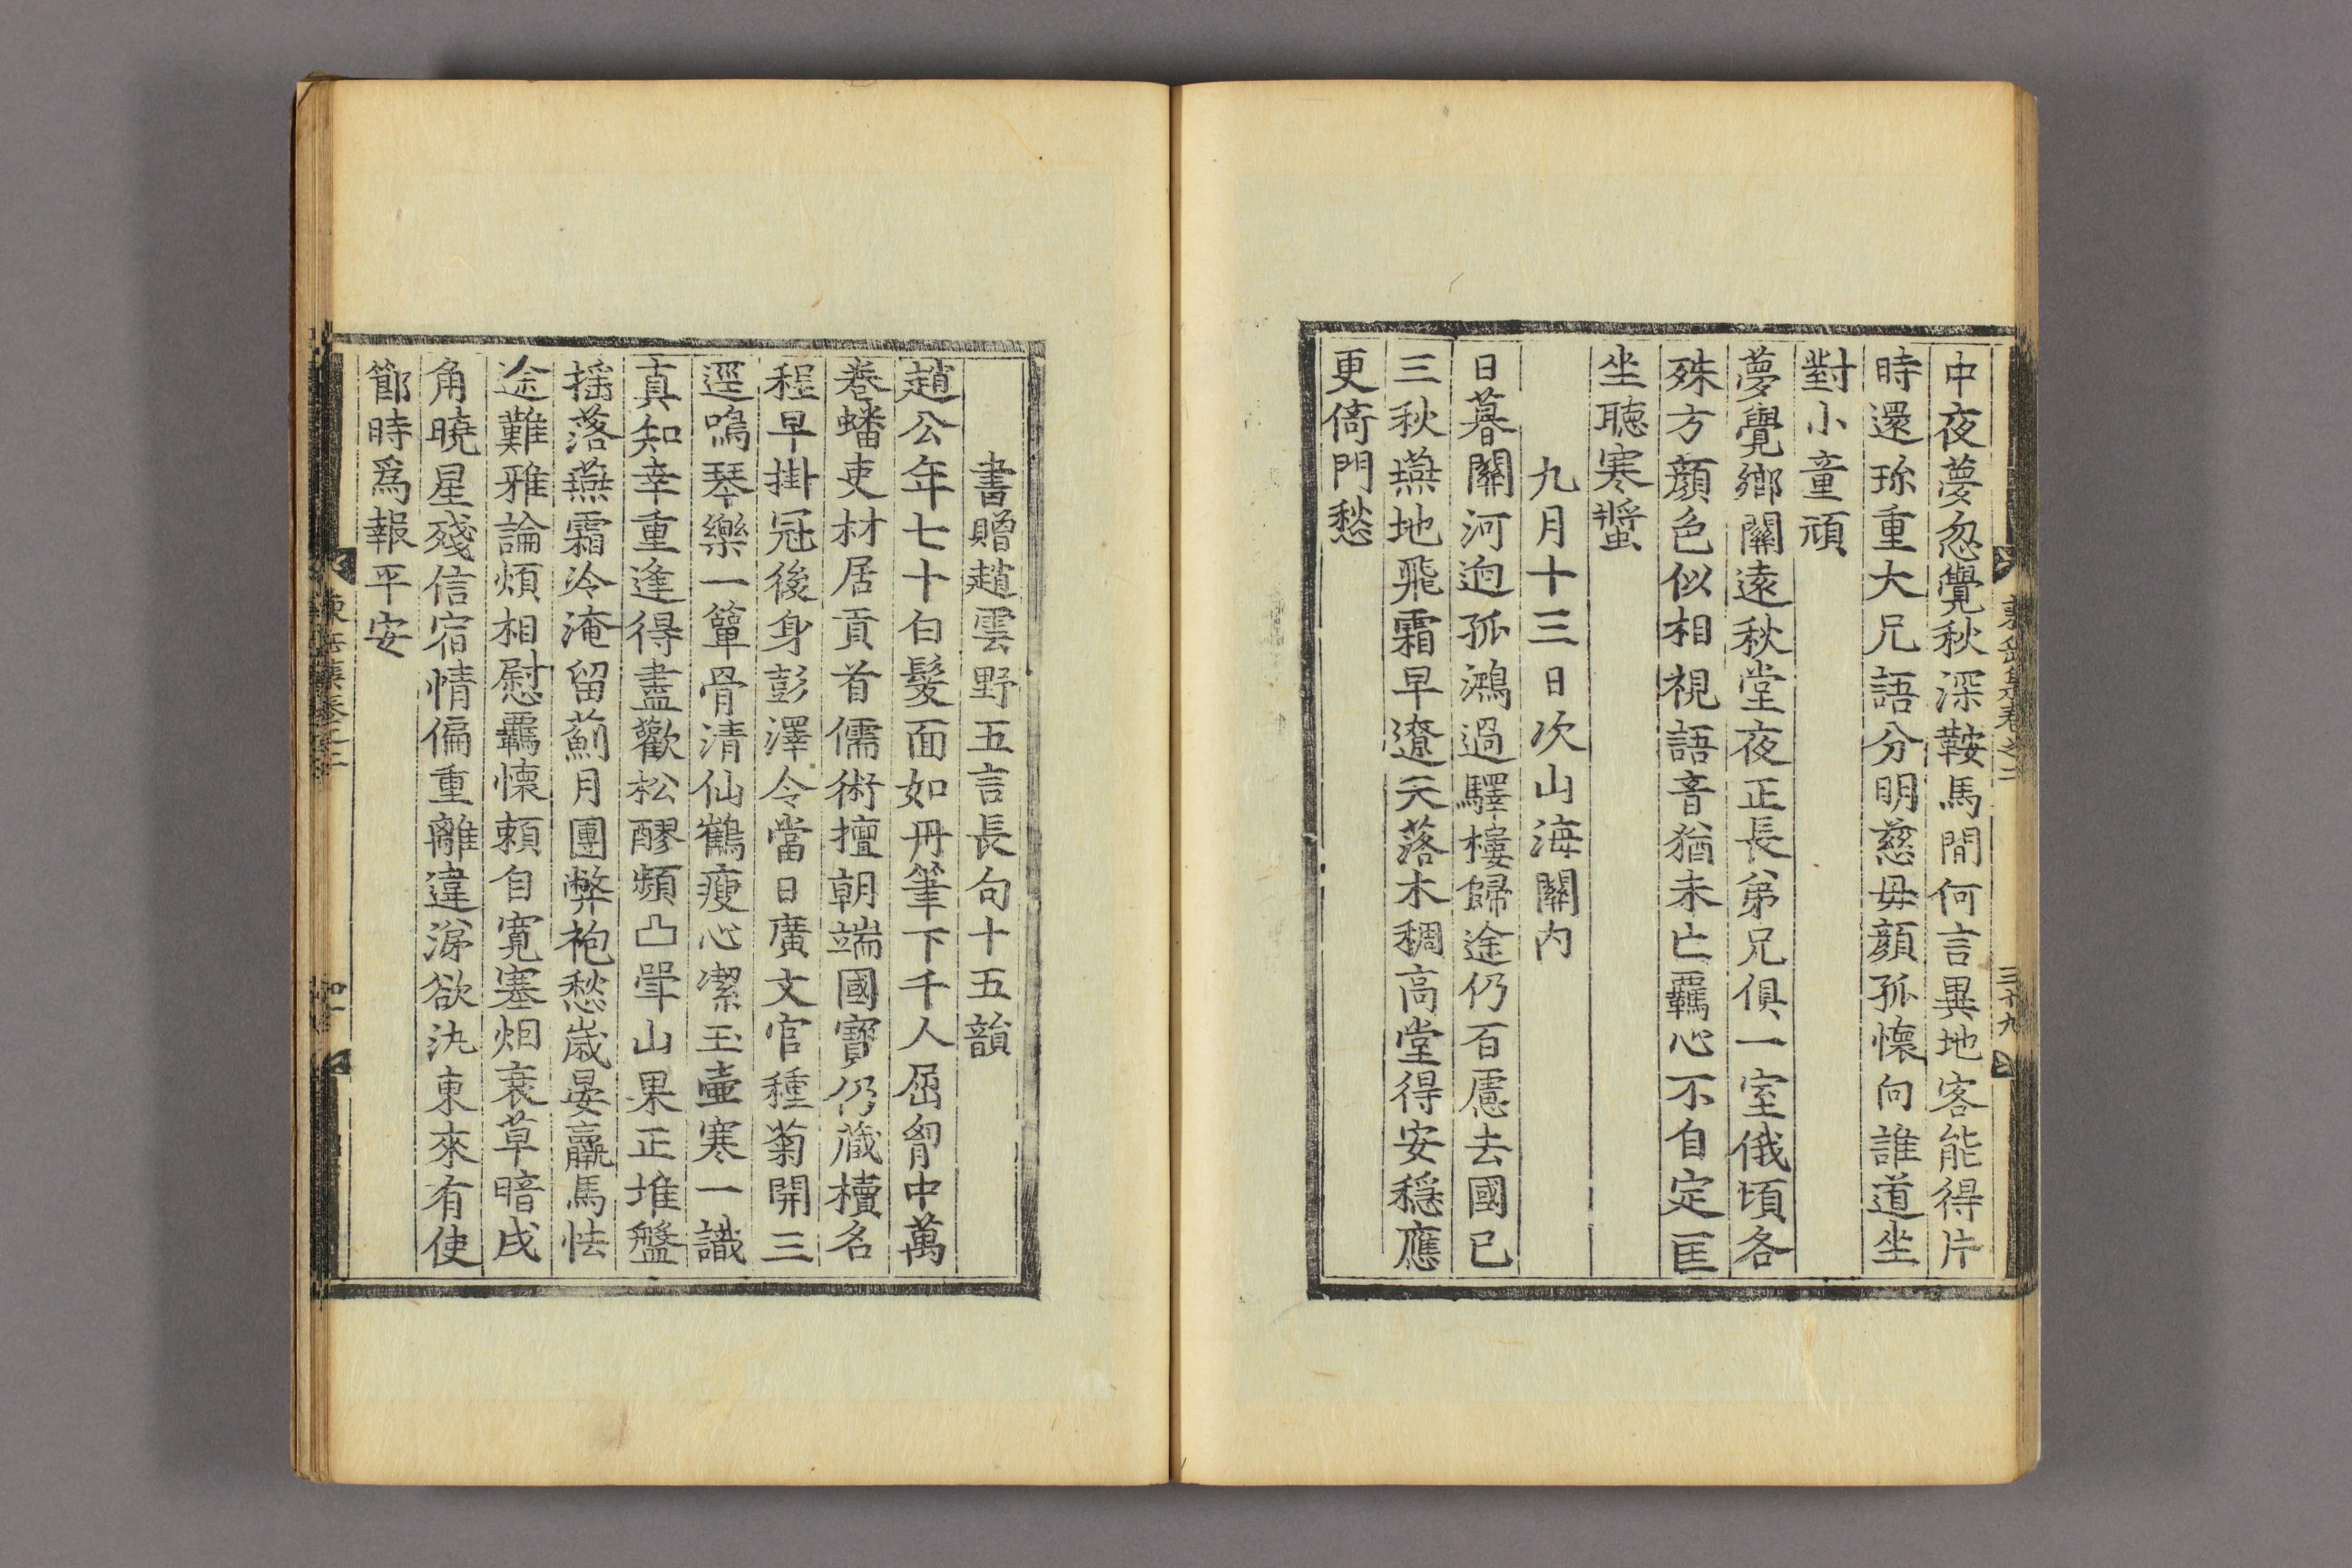 中夜夢忽覺秋深鞍馬間何言異地客能得片
時還珎重大兄語分明慈母顔孤懷向誰道坐
對小童頑
夢覺鄉關遠秋堂夜正長弟兄俱一室俄頃各
殊方顔色似相視語音猶未亡羈心不自定匡
坐聽寒螿
九月十三日次山海關内
日暮關河逈孤鴻過驛樓歸途仍百慮去國已
三秋燕地飛霜早遼天落木稠高堂得安穩應
更倚門愁
三十九
書贈趙雲野五言長句十五韻
趙公年七十白髮面如丹筆下千人屈胷中萬
卷蟠吏材居貢首儒術擅朝端國寶仍藏櫝名
程早掛冠後身彭澤令當日廣文官種菊開三
逕鳴琴樂一簞骨清仙鶴瘦心潔玉壷寒一識
真知幸重逢得盡歡松醪頻凸斝山果正堆盤
揺落燕霜冷淹留薊月團弊袍愁歲晏羸馬怯
途難雅論煩相慰羈懷頼自寛塞烟衰草暗戍
角曉星殘信宿情偏重離違涕欲汍東來有使
節時爲報平安